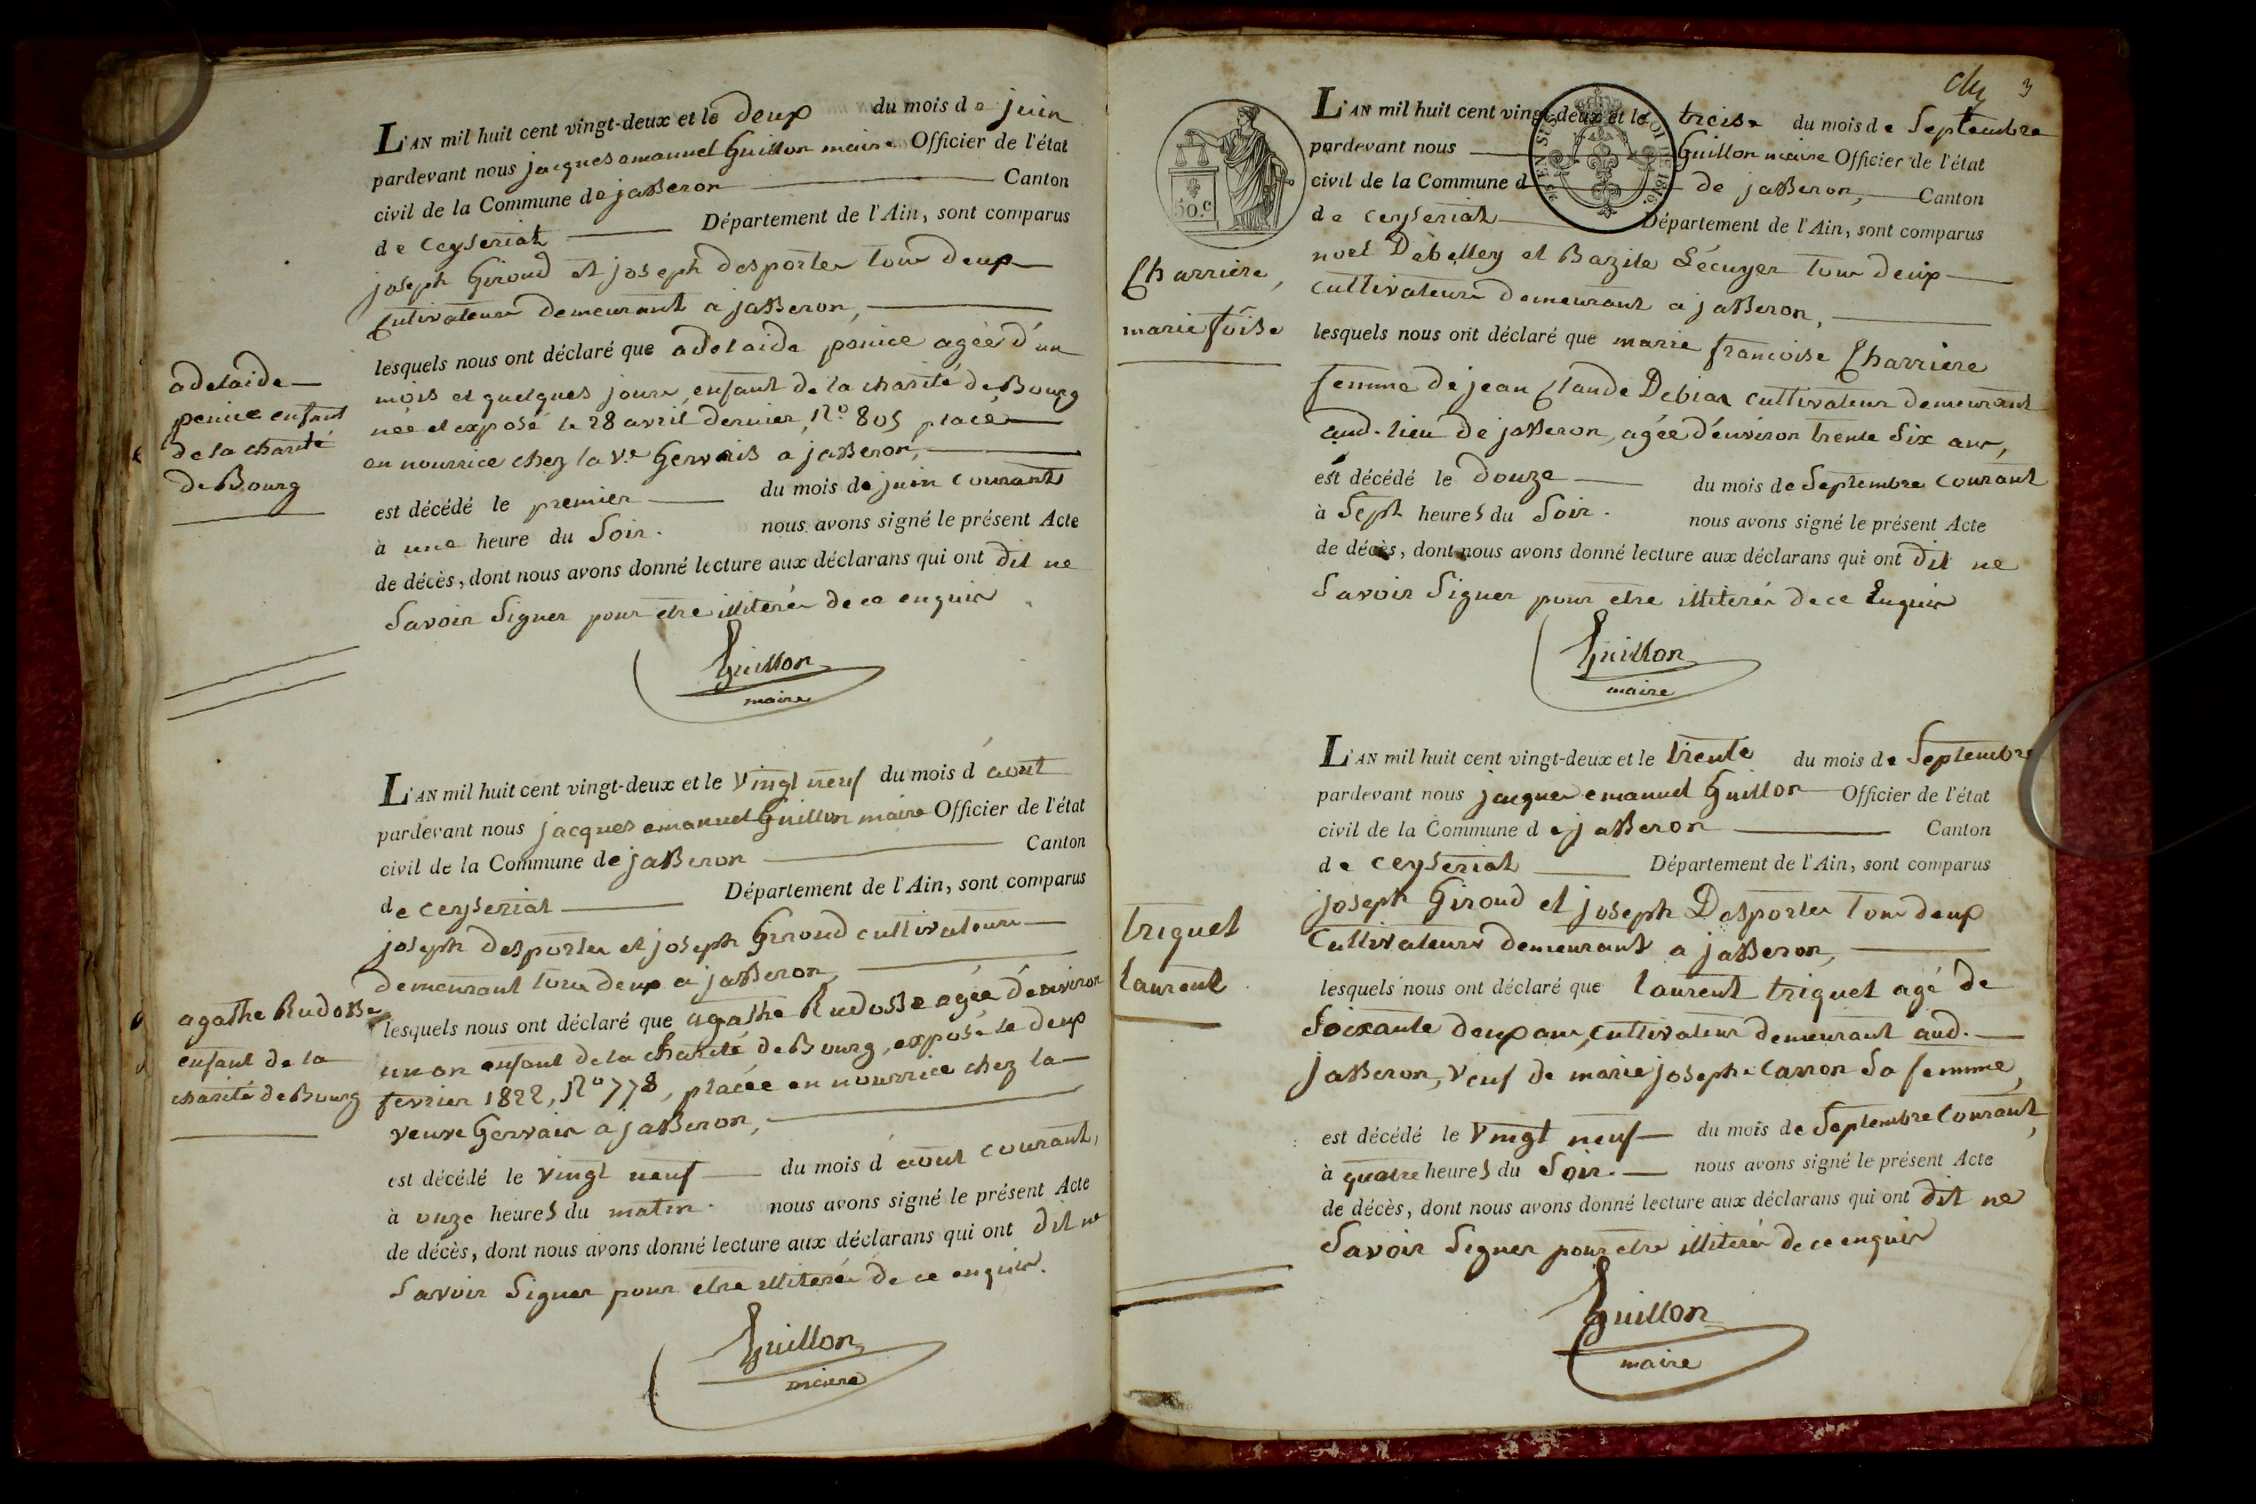 L'AN mil huit cent vingt-deux et le deux du mois de juin
pardevant nous jacques emanuel Guillon maire Officier de l'état
civil de la Commune de jasseron Canton
de Ceyseriat Département de l'Ain, sont comparus
joseph Giroud et joseph desportes tous deux
Cutivateurs demeurant a jasseron,
lesquels nous ont déclaré que adelaide penice agée d'un
mois et quelques jours, enfant de la charité de Bourg
née et exposé le 28 avril dernier, N.º 805 placé
en nourrice chez la V.e Gervais a jasseron,
est décédé le premier du mois de juin courant
à une heure du Soir. nous avons signé le présent Acte
de décès, dont nous avons donné lecture aux déclarans qui ont dit ne
Savoir Signer pour etre illiterés de ce enquis
Guillon
maire
adelaide
penice enfant
de la charité
de Bourg
L'AN mil huit cent vingt-deux et le vingt neuf du mois d'aout
pardevant nous jacques emanuel Guillon maire Officier de l'état
civil de la Commune de jasseron Canton
de Ceyseriat Département de l'Ain, sont comparus
joseph desportes et joseph Giroud cultivateurs
demeurant tous deux a jasseron,
lesquels nous ont déclaré que agathe Rudosse agée d'environ
un an enfant de la charité de Bourg, exposé le deux
fevrier 1822, N.º 778, placée en nourrice chez la
veuve Gervais a jasseron,
est décédé le vingt neuf du mois d'aout courant,
à onze heures du matin. nous avons signé le présent Acte
de décès, dont nous avons donné lecture aux déclarans qui ont dit ne
Savoir Signer pour etre illiterés de ce enquis.
Guillon
maire
agathe Rudosse
enfant de la
charité de Bourg
3
50.c
L'AN mil huit cent vingt-deux et le treise du mois de Septembre
pardevant nous Guillon maire Officier de l'état
civil de la Commune d de jasseron, Canton
de ceyseriat Département de l'Ain, sont comparus
noel Debelley et Bazile Lécuyer tous deux
cultivateurs demeurant a jasseron,
lesquels nous ont déclaré que marie francoise Charriere
femme de jean Claude Debias cultivateur demeurant
aud. lieu de jasseron, agée d'environ trente Six ans,
est décédé le douze du mois de Septembre courant
à Sept heures du Soir. nous avons signé le présent Acte
de décès, dont nous avons donné lecture aux déclarans qui ont dit ne
Savoir Signer pour etre illiterés de ce Enquis
Guillon
maire
Charriere,
marie foise
L'AN mil huit cent vingt-deux et le trente du mois de Septembre
pardevant nous jacques emanuel Guillon Officier de l'état
civil de la Commune de jasseron Canton
de ceyseriat Département de l'Ain, sont comparus
joseph Giroud et joseph Desportes tous deux
Cultivateurs demeurant a jasseron,
lesquels nous ont déclaré que laurent triquet agé de
Soixante deux ans, cultivateur demeurant aud.
jasseron, veuf de marie josephe Carron Sa femme,
est décédé le vingt neuf du mois de Septembre Courant,
à quatre heures du Soir. nous avons signé le présent Acte
de décès, dont nous avons donné lecture aux déclarans qui ont dit ne
Savoir Signer pour etre illiterés de ce enquis
Guillon
maire
triquet
laurent